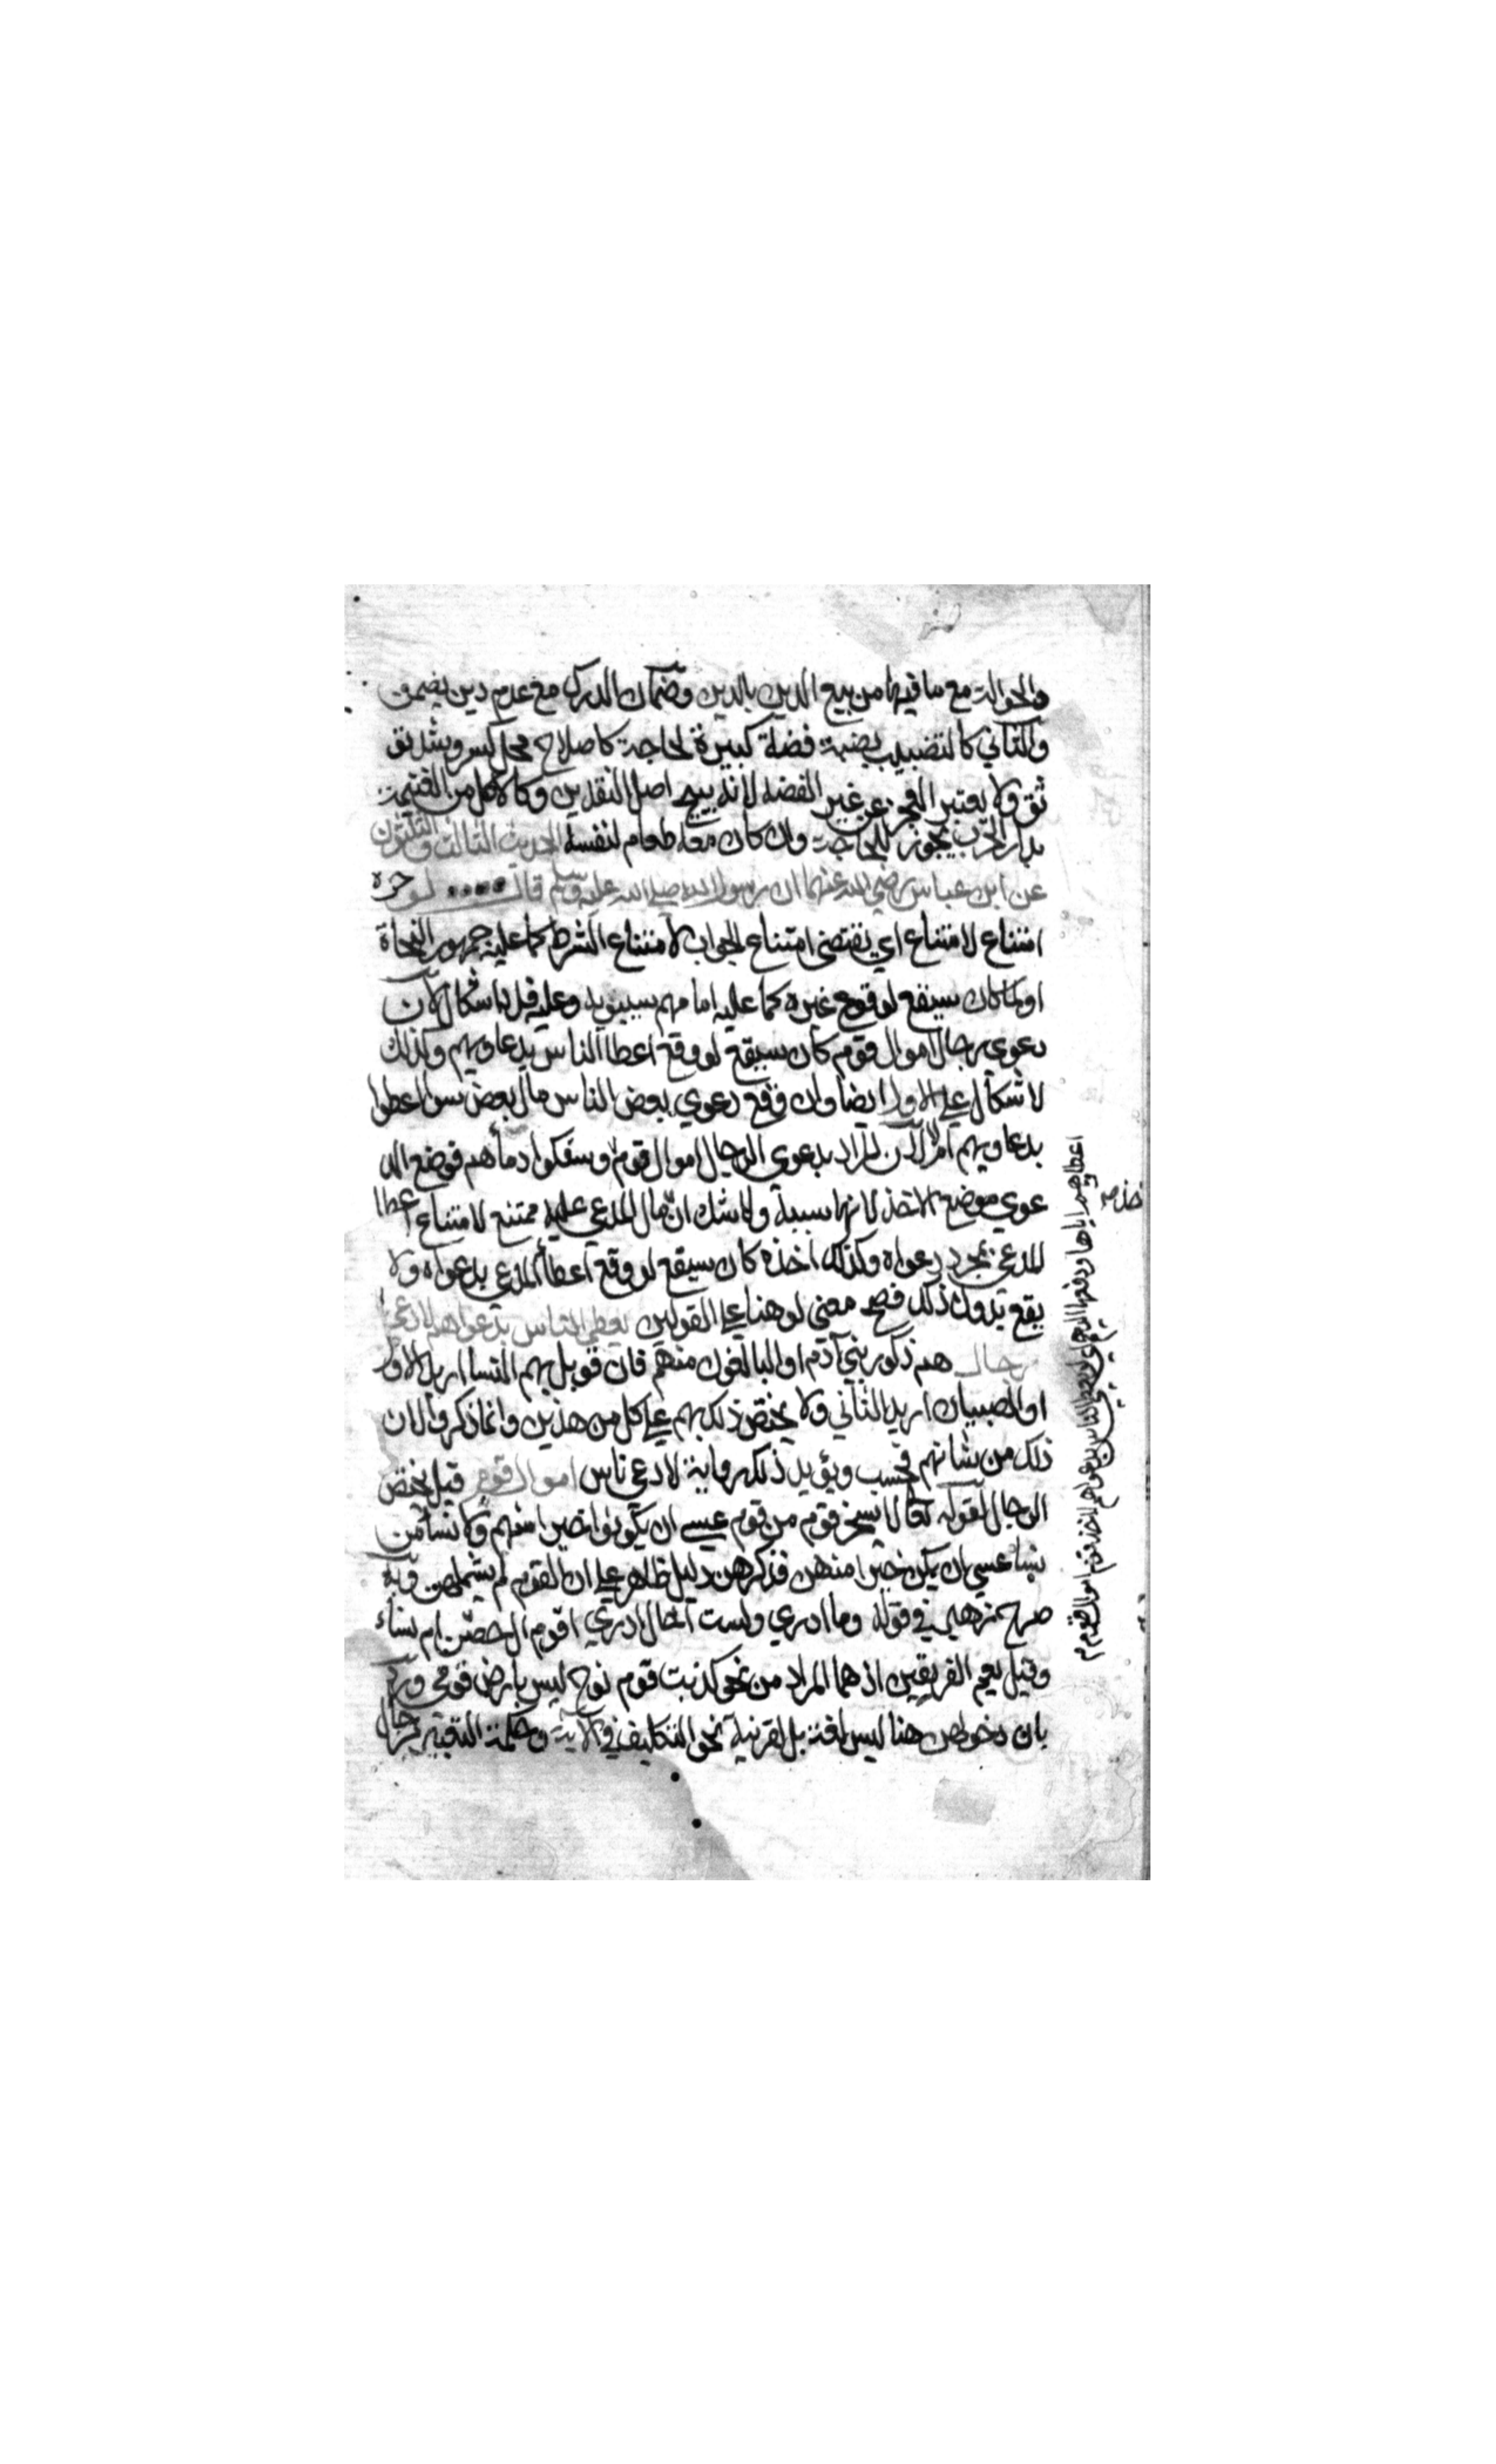 والحوالة مع ما فيها من بيع الدين بالدين وضمان الدرك مع عدم دين يضمن
والثاني كالتضبيب بضبة فضة كبيرة لحاجة كاصلاح محل كسر وشد تو
ثق ولا يعتبر العجز عن غير الفضة لانه يبيح اصل النقدين وكالاكل من الغنيمة
بدار الحرب يجوز للحاجة وان كان معه طعام لنفسه الحديث الثالث والثلثون
عن ابن عباس رضي الله عنهما ان رسول الله صلى الله عليه وسلم قال لو حرف
امتناع لامتناع اي يقتضي امتناع الجواب لامتناع الشرط كما عليه جمهور النحاة
او لما كان سيقع لوقوع غيره كما عليه امامهم سيبويه وعليه فلا اشكال لان
دعوى رجال اموال قوم كان سيقع لو وقع اعطا الناس بدعاويهم وكذلك
لا شكال على الاول ايضا وان وقع دعوى بعض الناس مال بعض سوا اعطوا
بدعاويهم ام لا لان المراد بدعوى الرجال اموال قوم وسفكوا دماهم فوضع الد
عوي موضع الاخذ لانها سببه ولا شك ان مال المدعى عليه ممتنع لامتناع اعطا
المدعي بمجرد دعواه وكذلك اخذه كان سيقع لو وقع اعطا المدعي بدعواه ولا
يقع بدون ذلك فصح معنى لو هنا على القولين يعطى الناس بدعواهم لادعى
رجال هم ذكور بني آدم او البالغون منهم فان قوبل بهم النسا اريد الاول
او الصبيان اريد الثاني ولا يختص ذلك بهم على كل من هذين وانما ذكروا لان
ذلك من شانهم فحسب ويؤيد ذلك رواية لادعى ناس اموال قوم قيل يختص
الرجال لقوله تعالى لا يسخر قوم من قوم عسى ان يكونوا خيرا منهم ولا نساء من
نساء عسى ان يكن خيرا منهن فذكرهن دليل ظاهر على ان القوم لم يشملهن وبه
صرح زهير في قوله وما ادري ولست اخال ادري اقوم ال حصن ام نساء
وقيل يعم الفريقين اذ هما المراد من نحو كذبت قوم نوح ليس بارض قومي ورد
بان دخولهن هنا ليس لغة بل لقرينة نحو التكليف في الآية وحكمة التعبير برجال
اعطاوهم اياها ودفعها الدعوى لو يعطى الناس بدعواهم لاخذ قوم اموال قوم